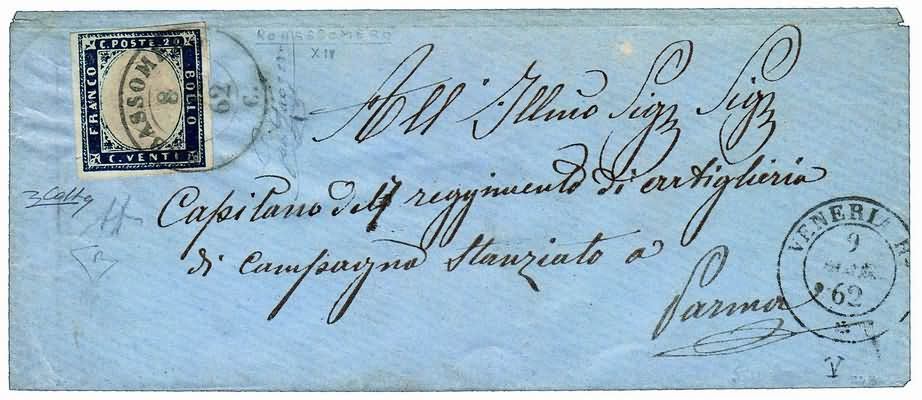 C. POSTE 20
FRANCO
BOLLO
C. VENTI
ASSOM
8
62
XIV
All' Illmo Sigr Sigr
Capitano del 7 reggimento di artiglieria
di campagna Stanziato a
Parma
VENERIA R
9
62
V